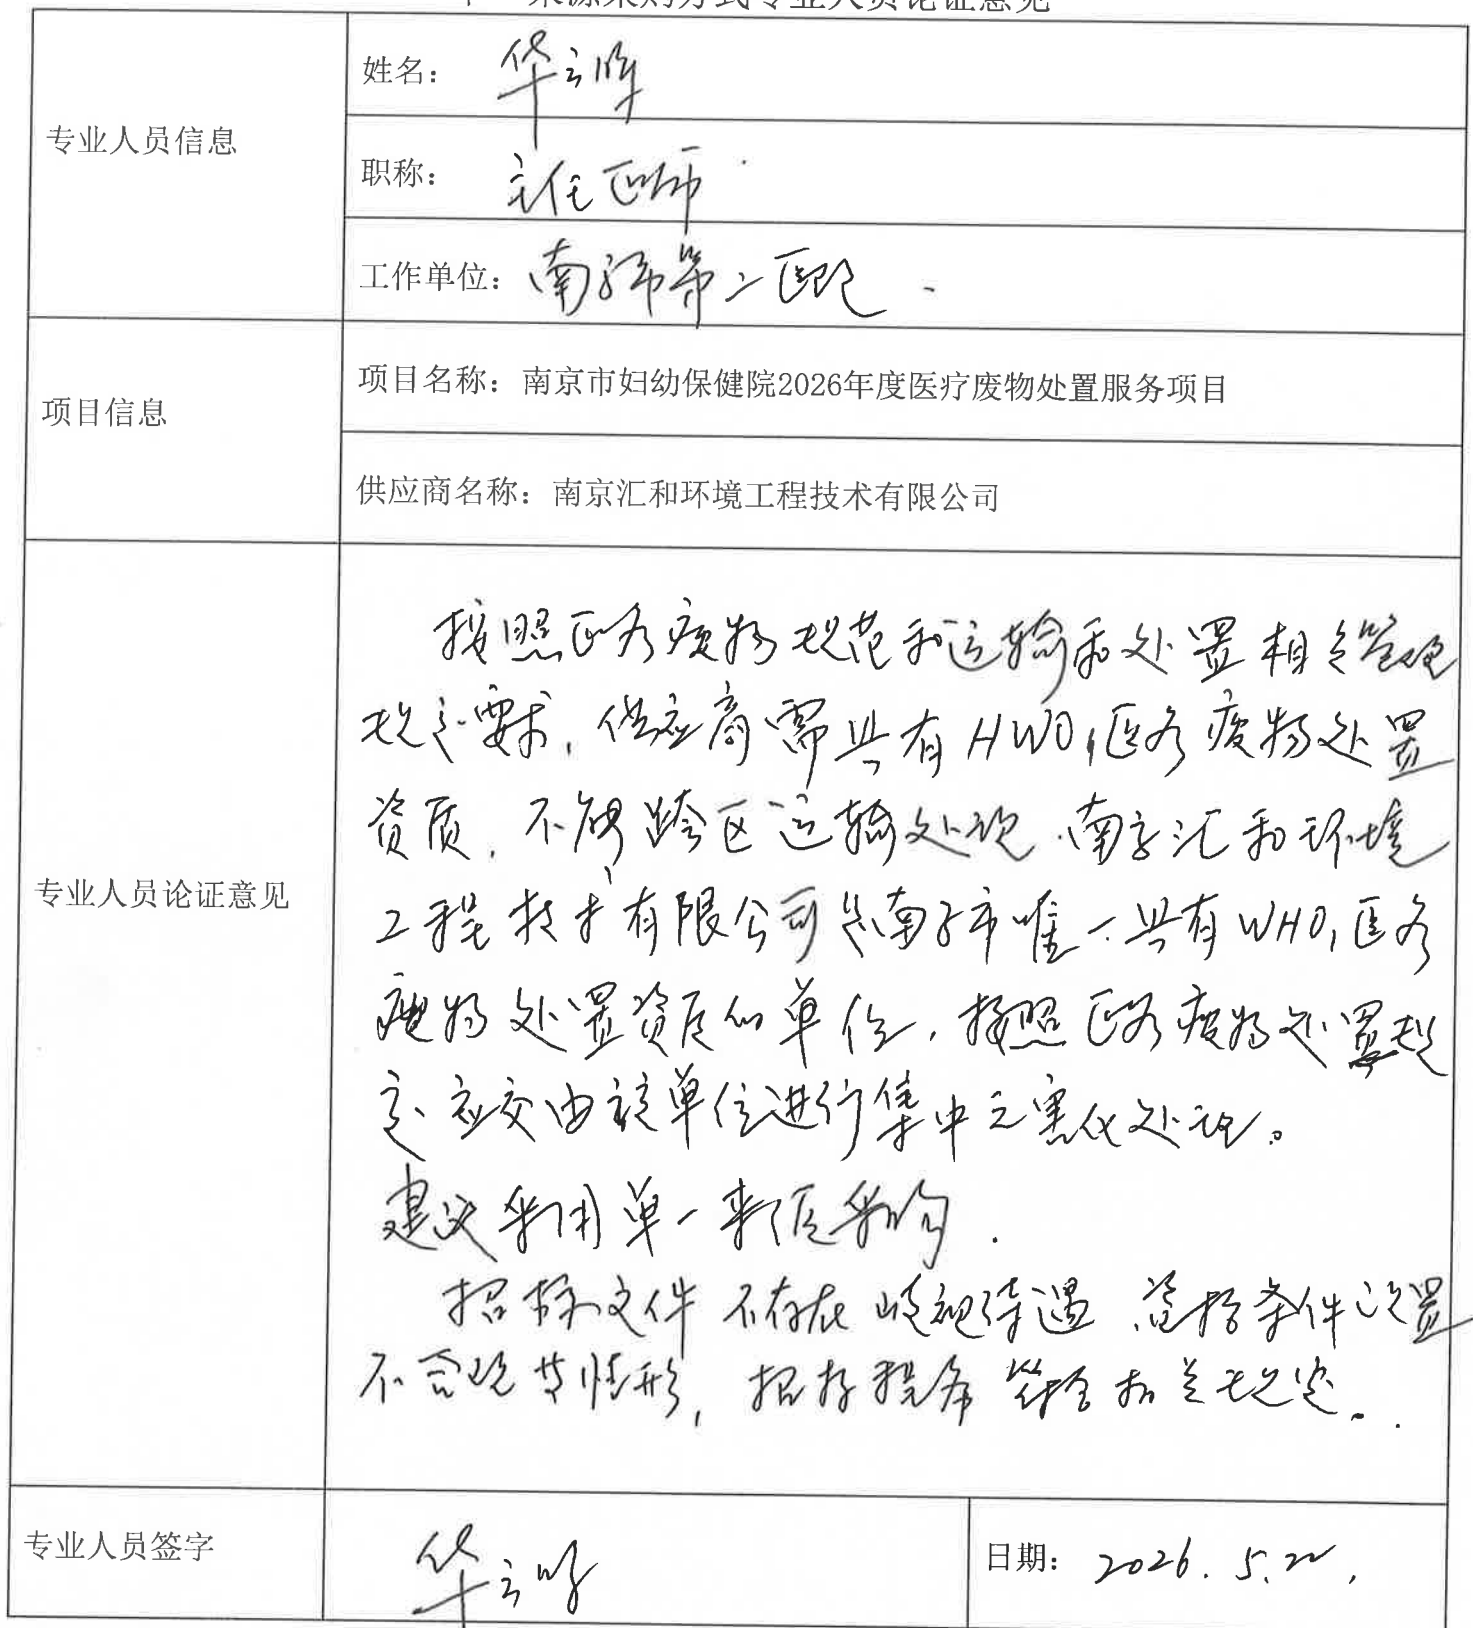 单一来源采购方式专业人员论证意见
专业人员信息
姓名： 华
职称： 主任医师
工作单位： 南京市第二医院
项目信息
项目名称：南京市妇幼保健院2026年度医疗废物处置服务项目
供应商名称：南京汇和环境工程技术有限公司
专业人员论证意见
按照医疗废物规范和运输和处置相关管理
规定要求，供应商需具有HW01医疗废物处置
资质，不能跨区运输处理。南京汇和环境
工程技术有限公司是南京市唯一具有WH01医疗
废物处置资质的单位，按照医疗废物处置规
定应交由该单位进行集中无害化处理。
建议采用单一来源采购.
招标文件不存在歧视待遇，资格条件设置
不合理等情形，招标程序符合相关规定。
专业人员签字
华
日期： 2026.5.22.